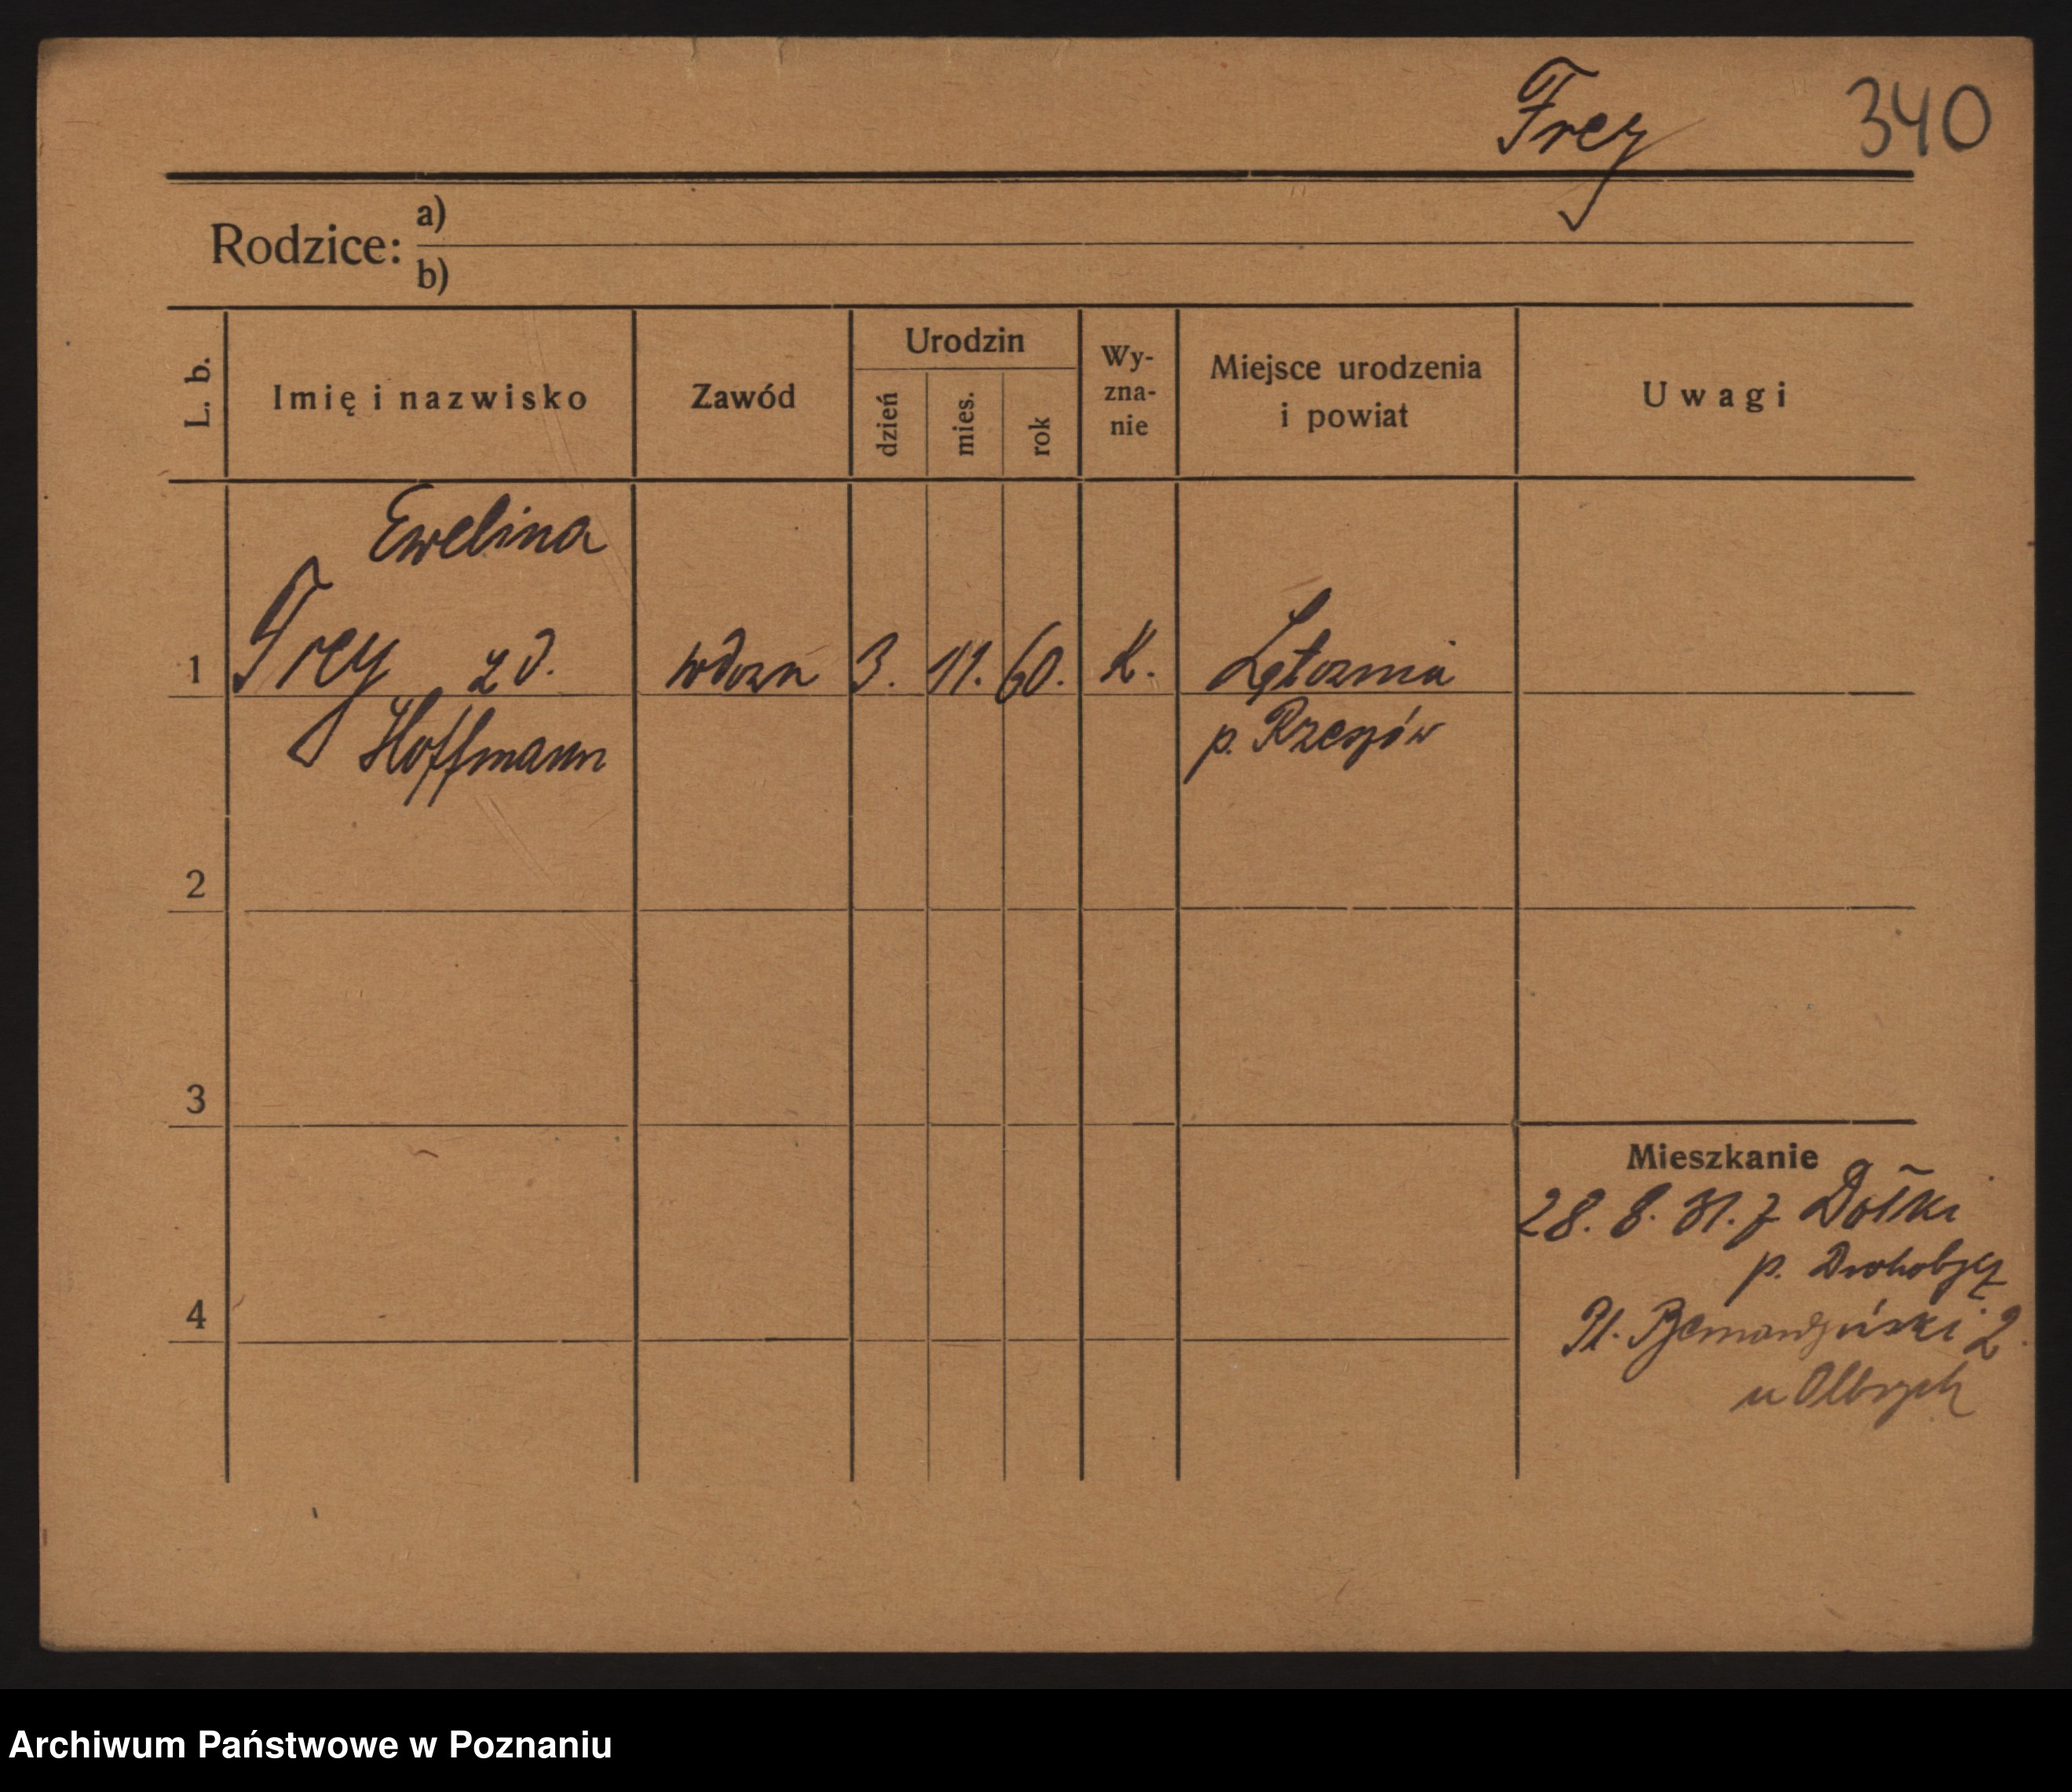 Frey 340
Rodzice: a)
b)
L. b. Imię i nazwisko Zawód Urodzin dzień mies. rok Wy-zna-nie Miejsce urodzenia i powiat Uwagi
Ewelina
1 Frey zd. wdowa 3. 11. 60. K. Łętownia
Hoffmann p. Rzeszów
2
3
Mieszkanie
28. 8. 31. z Dołki
p. Drohobycz
4 Pl. Bernardyński 2.
u Olbrych
Archiwum Państwowe w Poznaniu